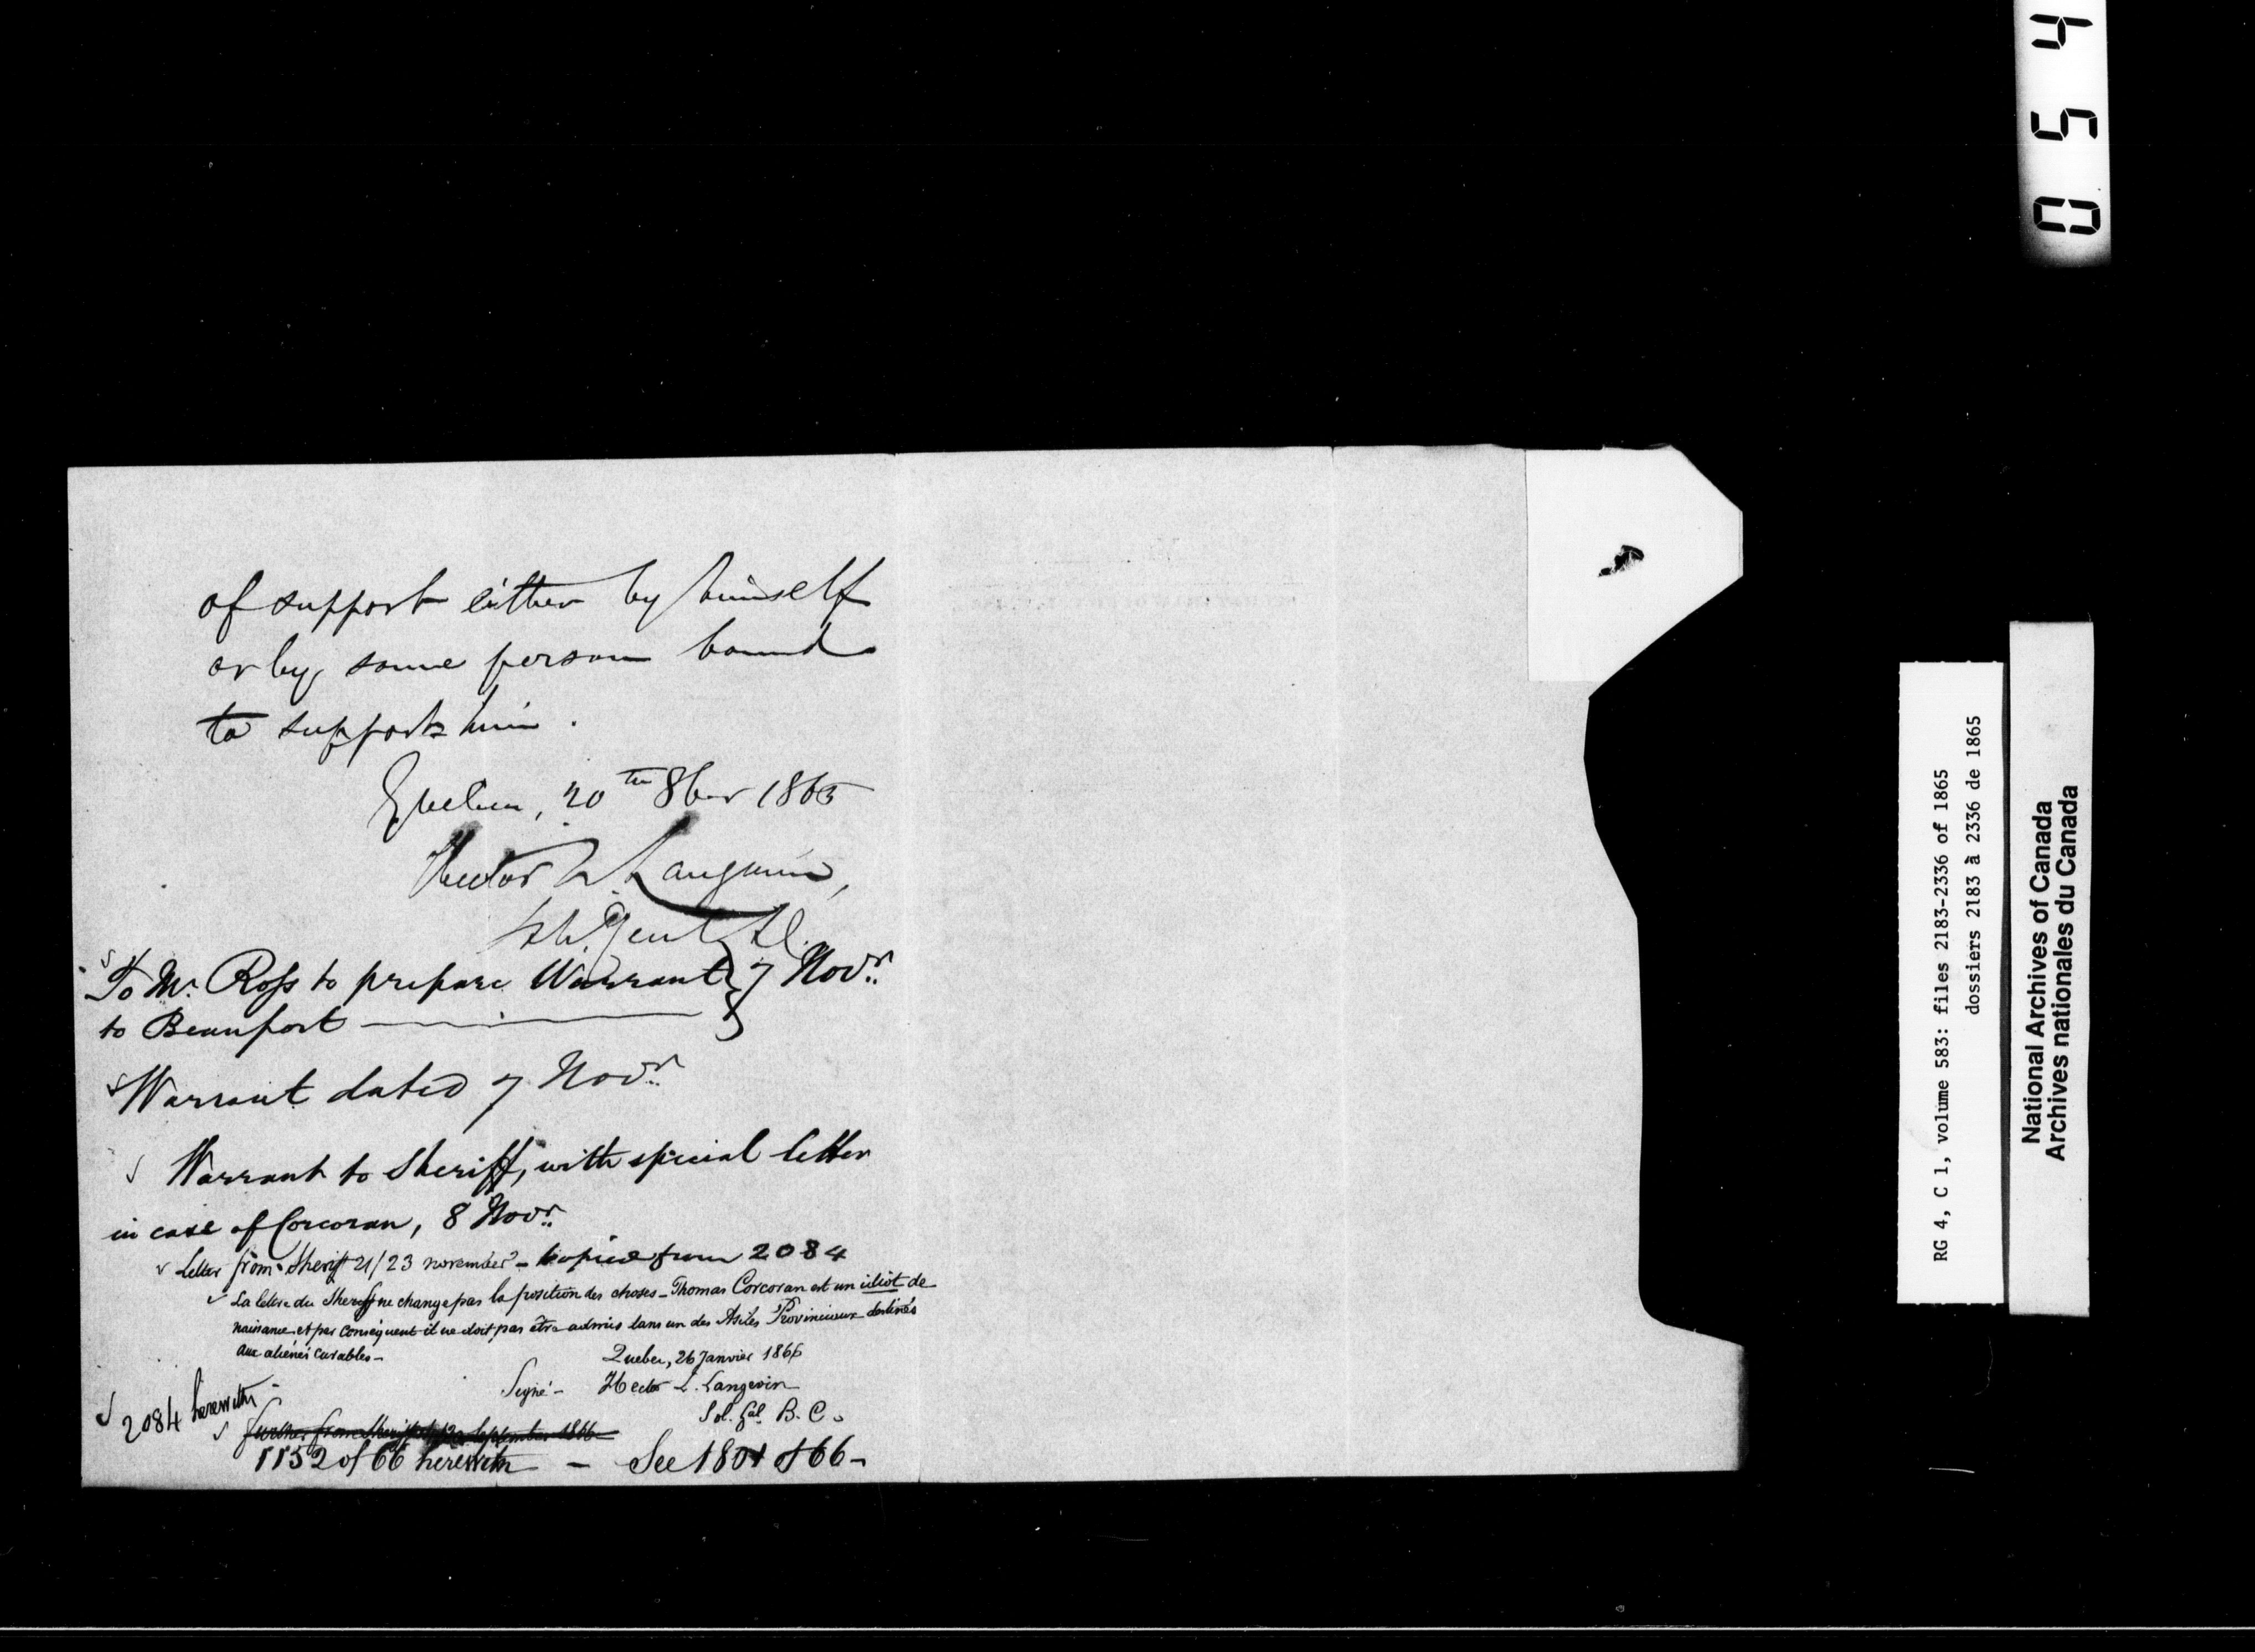 of support either by himself
or by some person bound
to support him.
Quebec, 20th 8ber 1865
Hector L. Langevin,
Sol. Genl L.C.
To Mr. Ross to prepare Warrant } 7 Novr.
to Beauport
Warrant dated 7 Novr.
Warrant to Sheriff, with special letter
in case of Corcoran, 8 Novr.
Letter from Sheriff 21/23 november - copied from 2084
La lettre du Sheriff ne change pas la position des choses - Thomas Corcoran est un idiot de
naissance et par conséquent il ne doit pas être admis dans un des Asiles Provinciaux destinés
aux aliénés curables -
Quebec, 26 Janvier 1866
Signé - Hector L. Langevin
Sol. Gal. B.C.
2084 herewith -
further from Sheriff 12 September 1866
1152 of 66 herewith - See 1801 of 66 -
0 5 4
RG 4, C 1, volume 583: files 2183-2336 of 1865
dossiers 2183 à 2336 de 1865
National Archives of Canada
Archives nationales du Canada